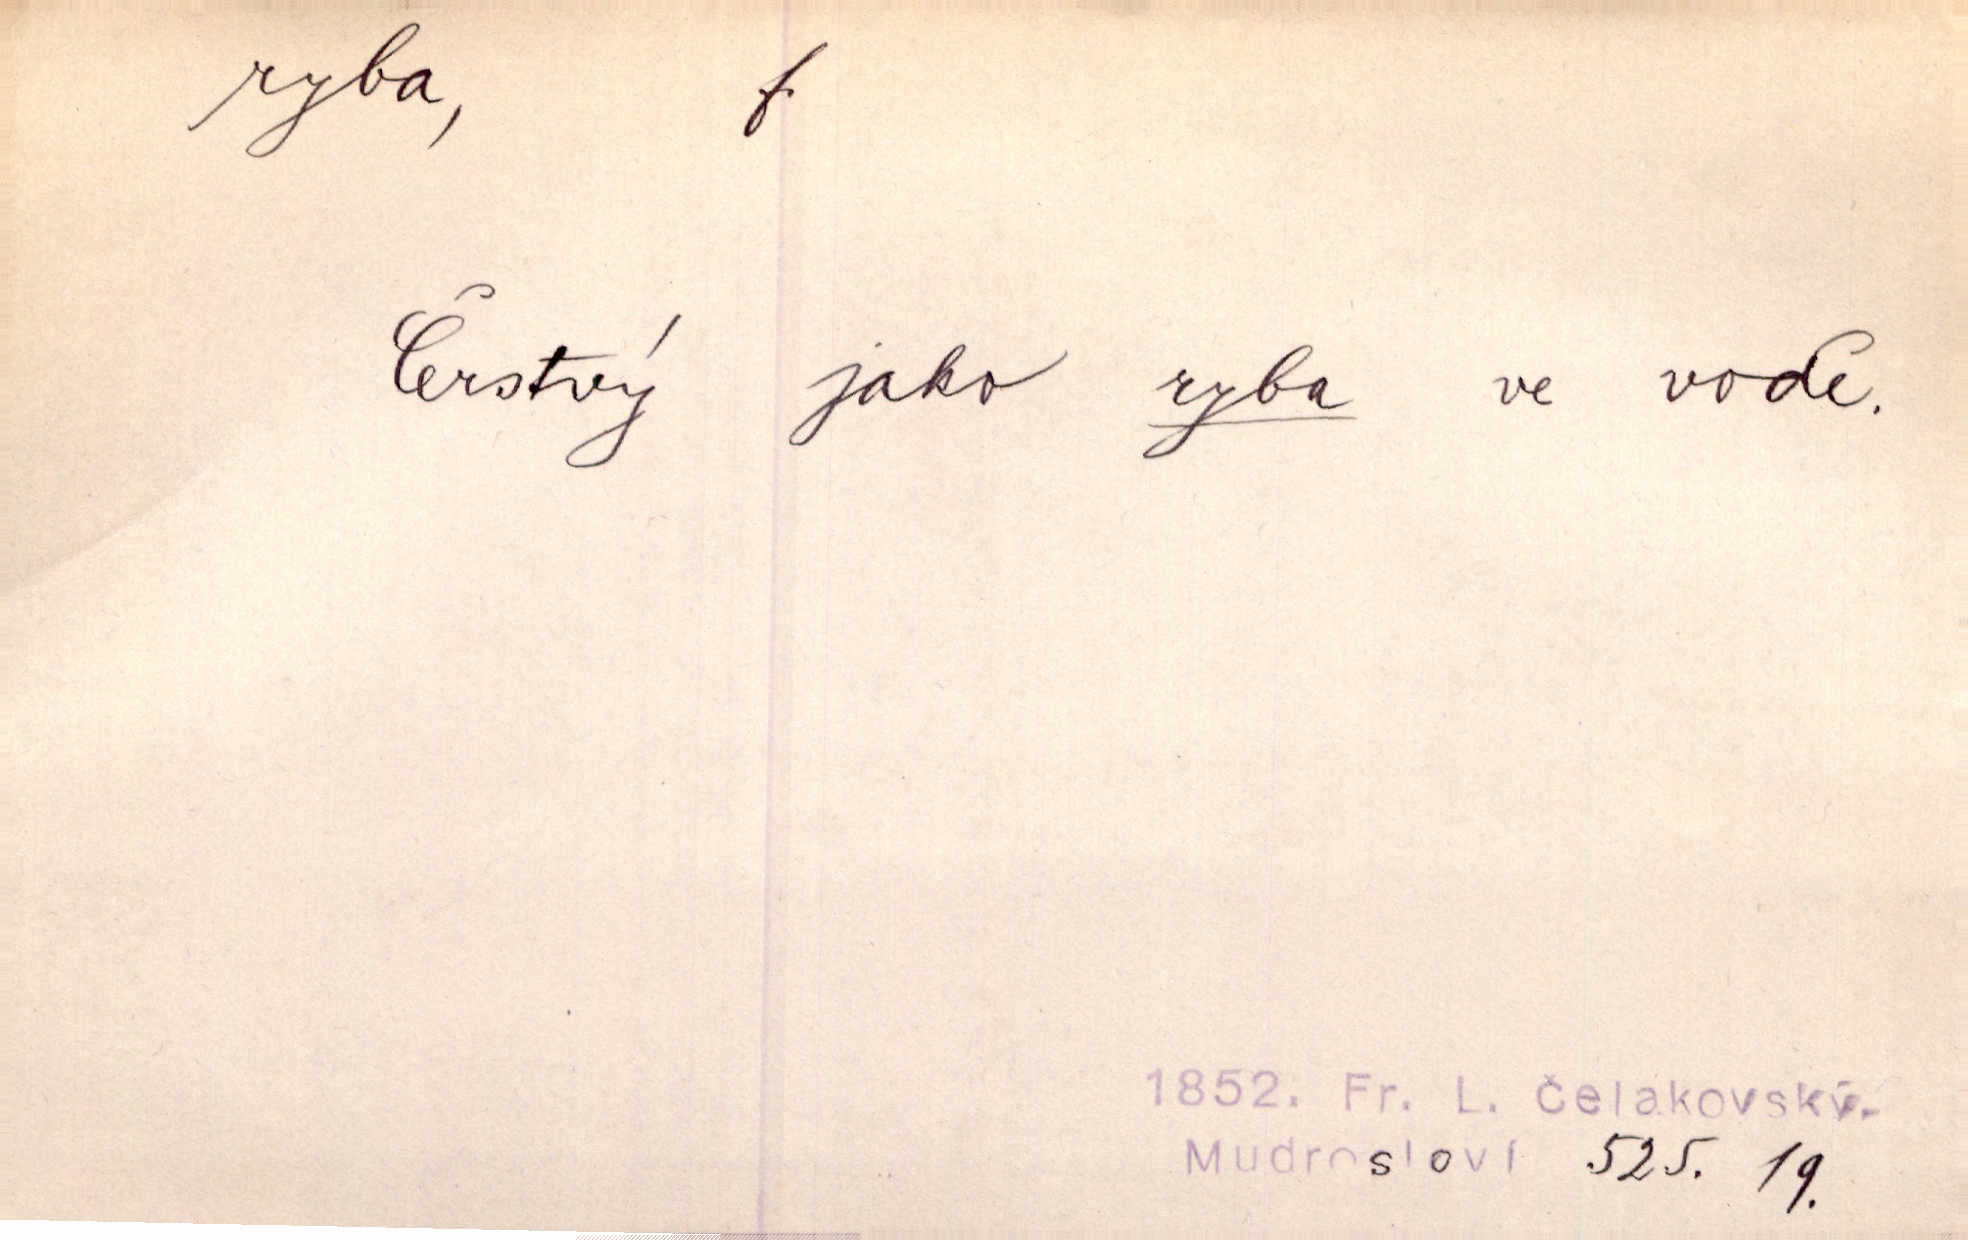 ryba, f
Čerstvý jako ryba ve vodě.
1852. Fr. L. Čelakovský.
Mudrosloví 525. 19.